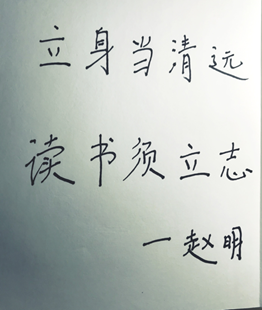 立身当清远
读书须立志
一赵明